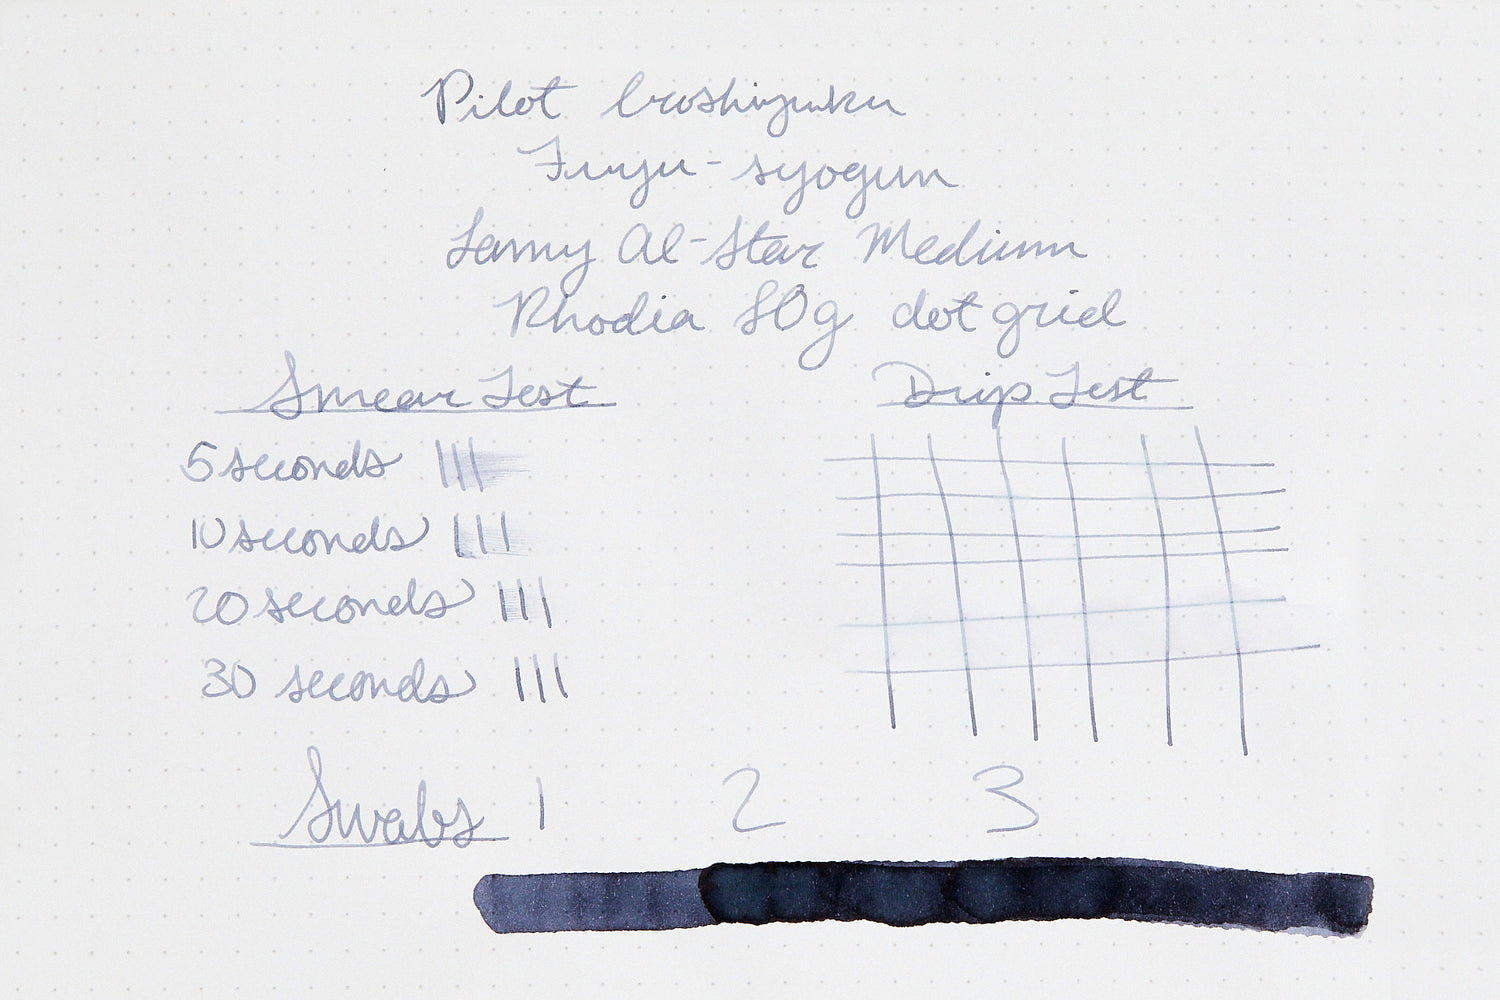 Pilot Iroshizuku
Fuyu-syogun
Lamy Al-Star Medium
Rhodia 80g dot grid
Smear Test
Drip Test
5 seconds
10 seconds
20 seconds
30 seconds
Swabs 1 2 3